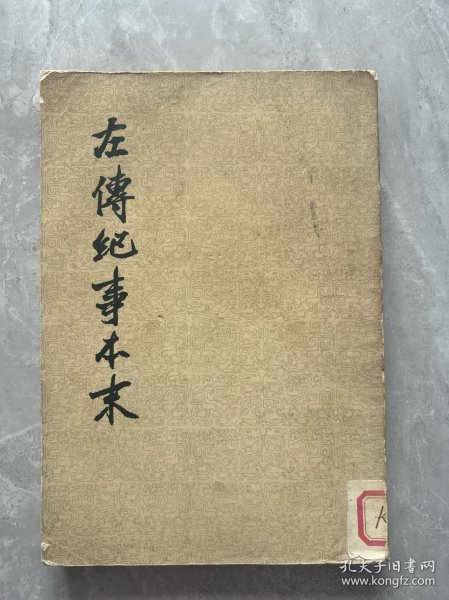 左傳紀事本末
K
孔夫子旧书网
www.kongfz.com